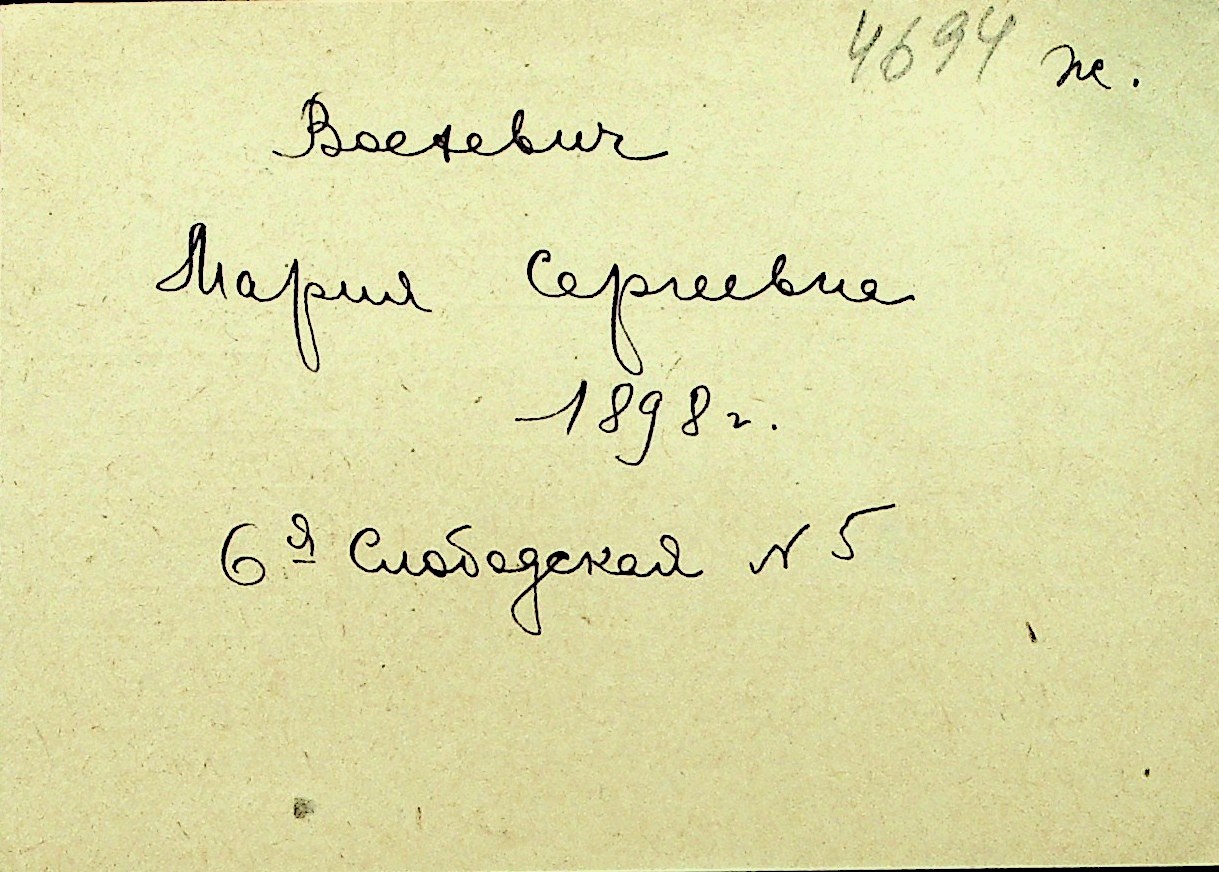 4694 ж.
Воетевич
Мария Сергеевна
1898 г.
6я Слободская N 5